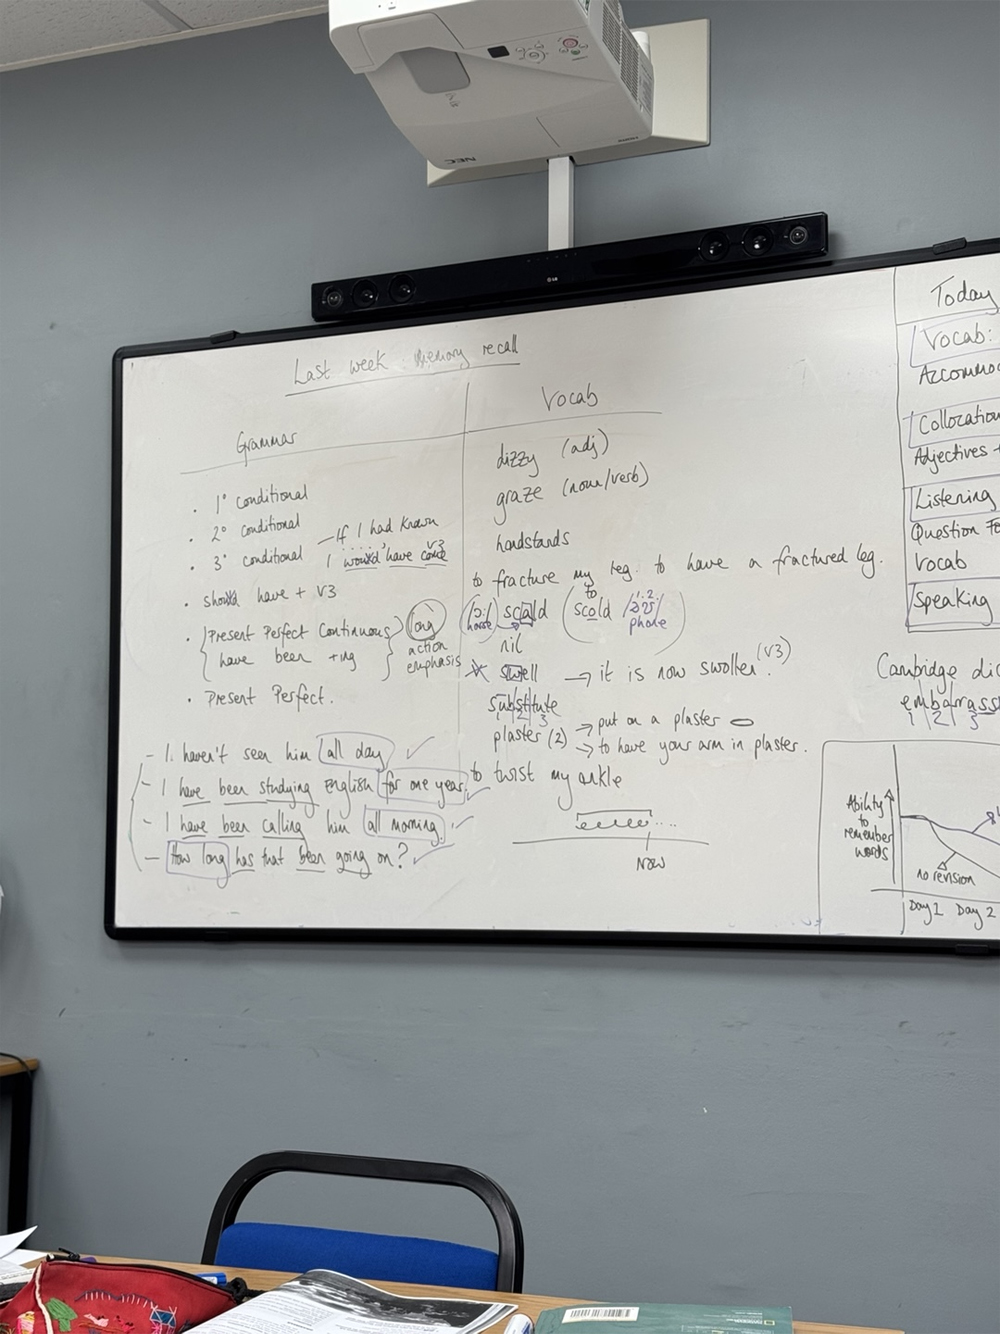 NEC
HDMI
LG
Last week memory recall
Grammar
1° conditional
2° conditional
3° conditional
If I had known
I would have come
V3
should have + V3
Present Perfect Continuous
have been +ing
long
action
emphasis
Present Perfect.
- I haven't seen him all day
- I have been studying English for one year.
- I have been calling him all morning.
- How long has that been going on?
Vocab
dizzy (adj)
graze (noun/verb)
handstands
to fracture my leg. to have a fractured leg.
/ɔ:/ scald (to scold /əʊ/)
horse
1. 2.
phone
nil
swell → it is now swollen (V3)
substitute
1 2 3
plaster (2) → put on a plaster
→ to have your arm in plaster.
to twist my ankle
Now
Today
Vocab:
Accommo
Collocation
Adjectives +
Listening
Question Fo
Vocab
Speaking
Cambridge dic
embarrass
1 2 3
Ability
to
remember
words
no revision
Day 1 Day 2